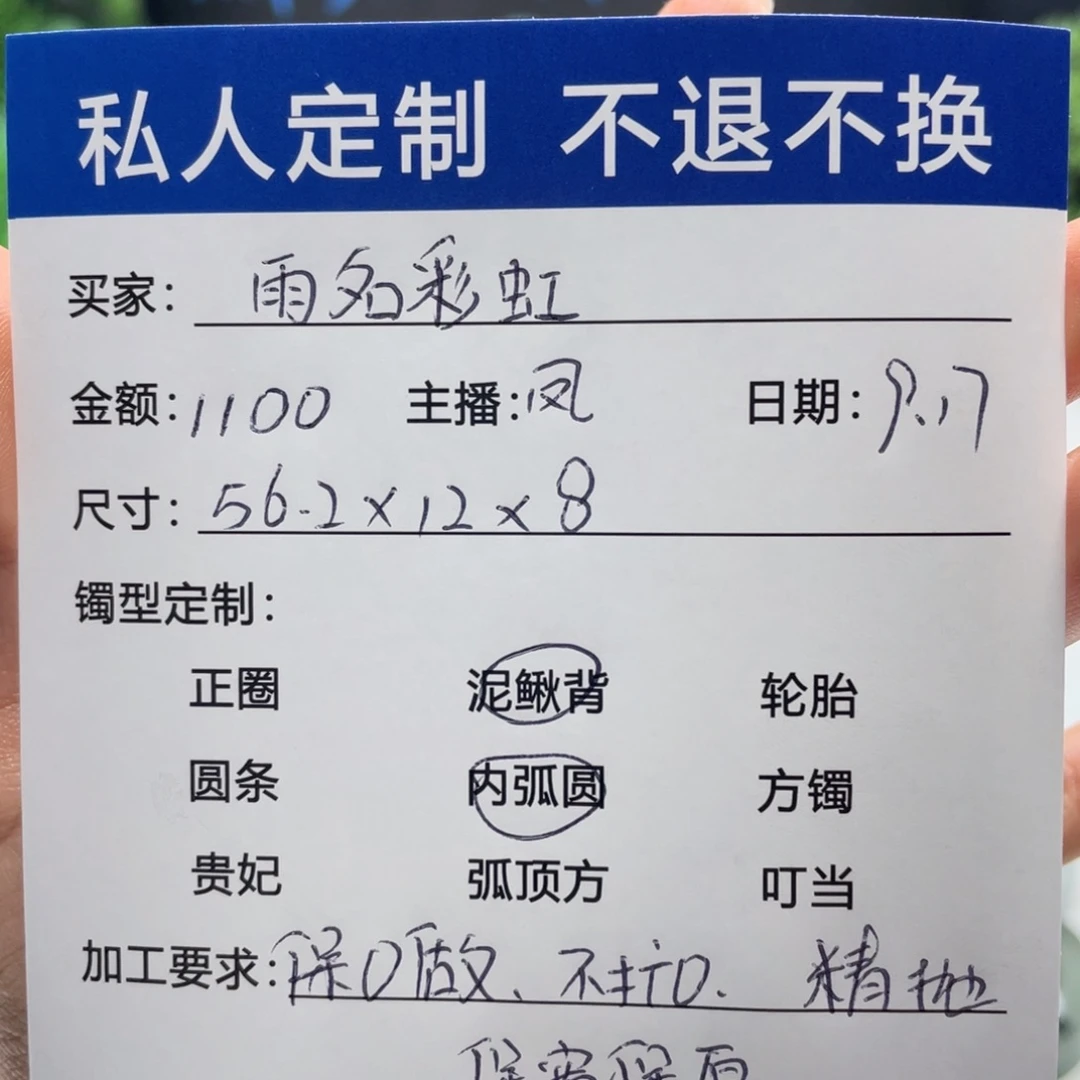 私人定制 不退不换
买家：雨名彩虹
金额：1100 主播：凤 日期：9.17
尺寸：56.2×12×8
镯型定制：
正圈 泥鳅背 轮胎
圆条 内弧圆 方镯
贵妃 弧顶方 叮当
加工要求：保口做、不扩口. 精抛
保宽保厚